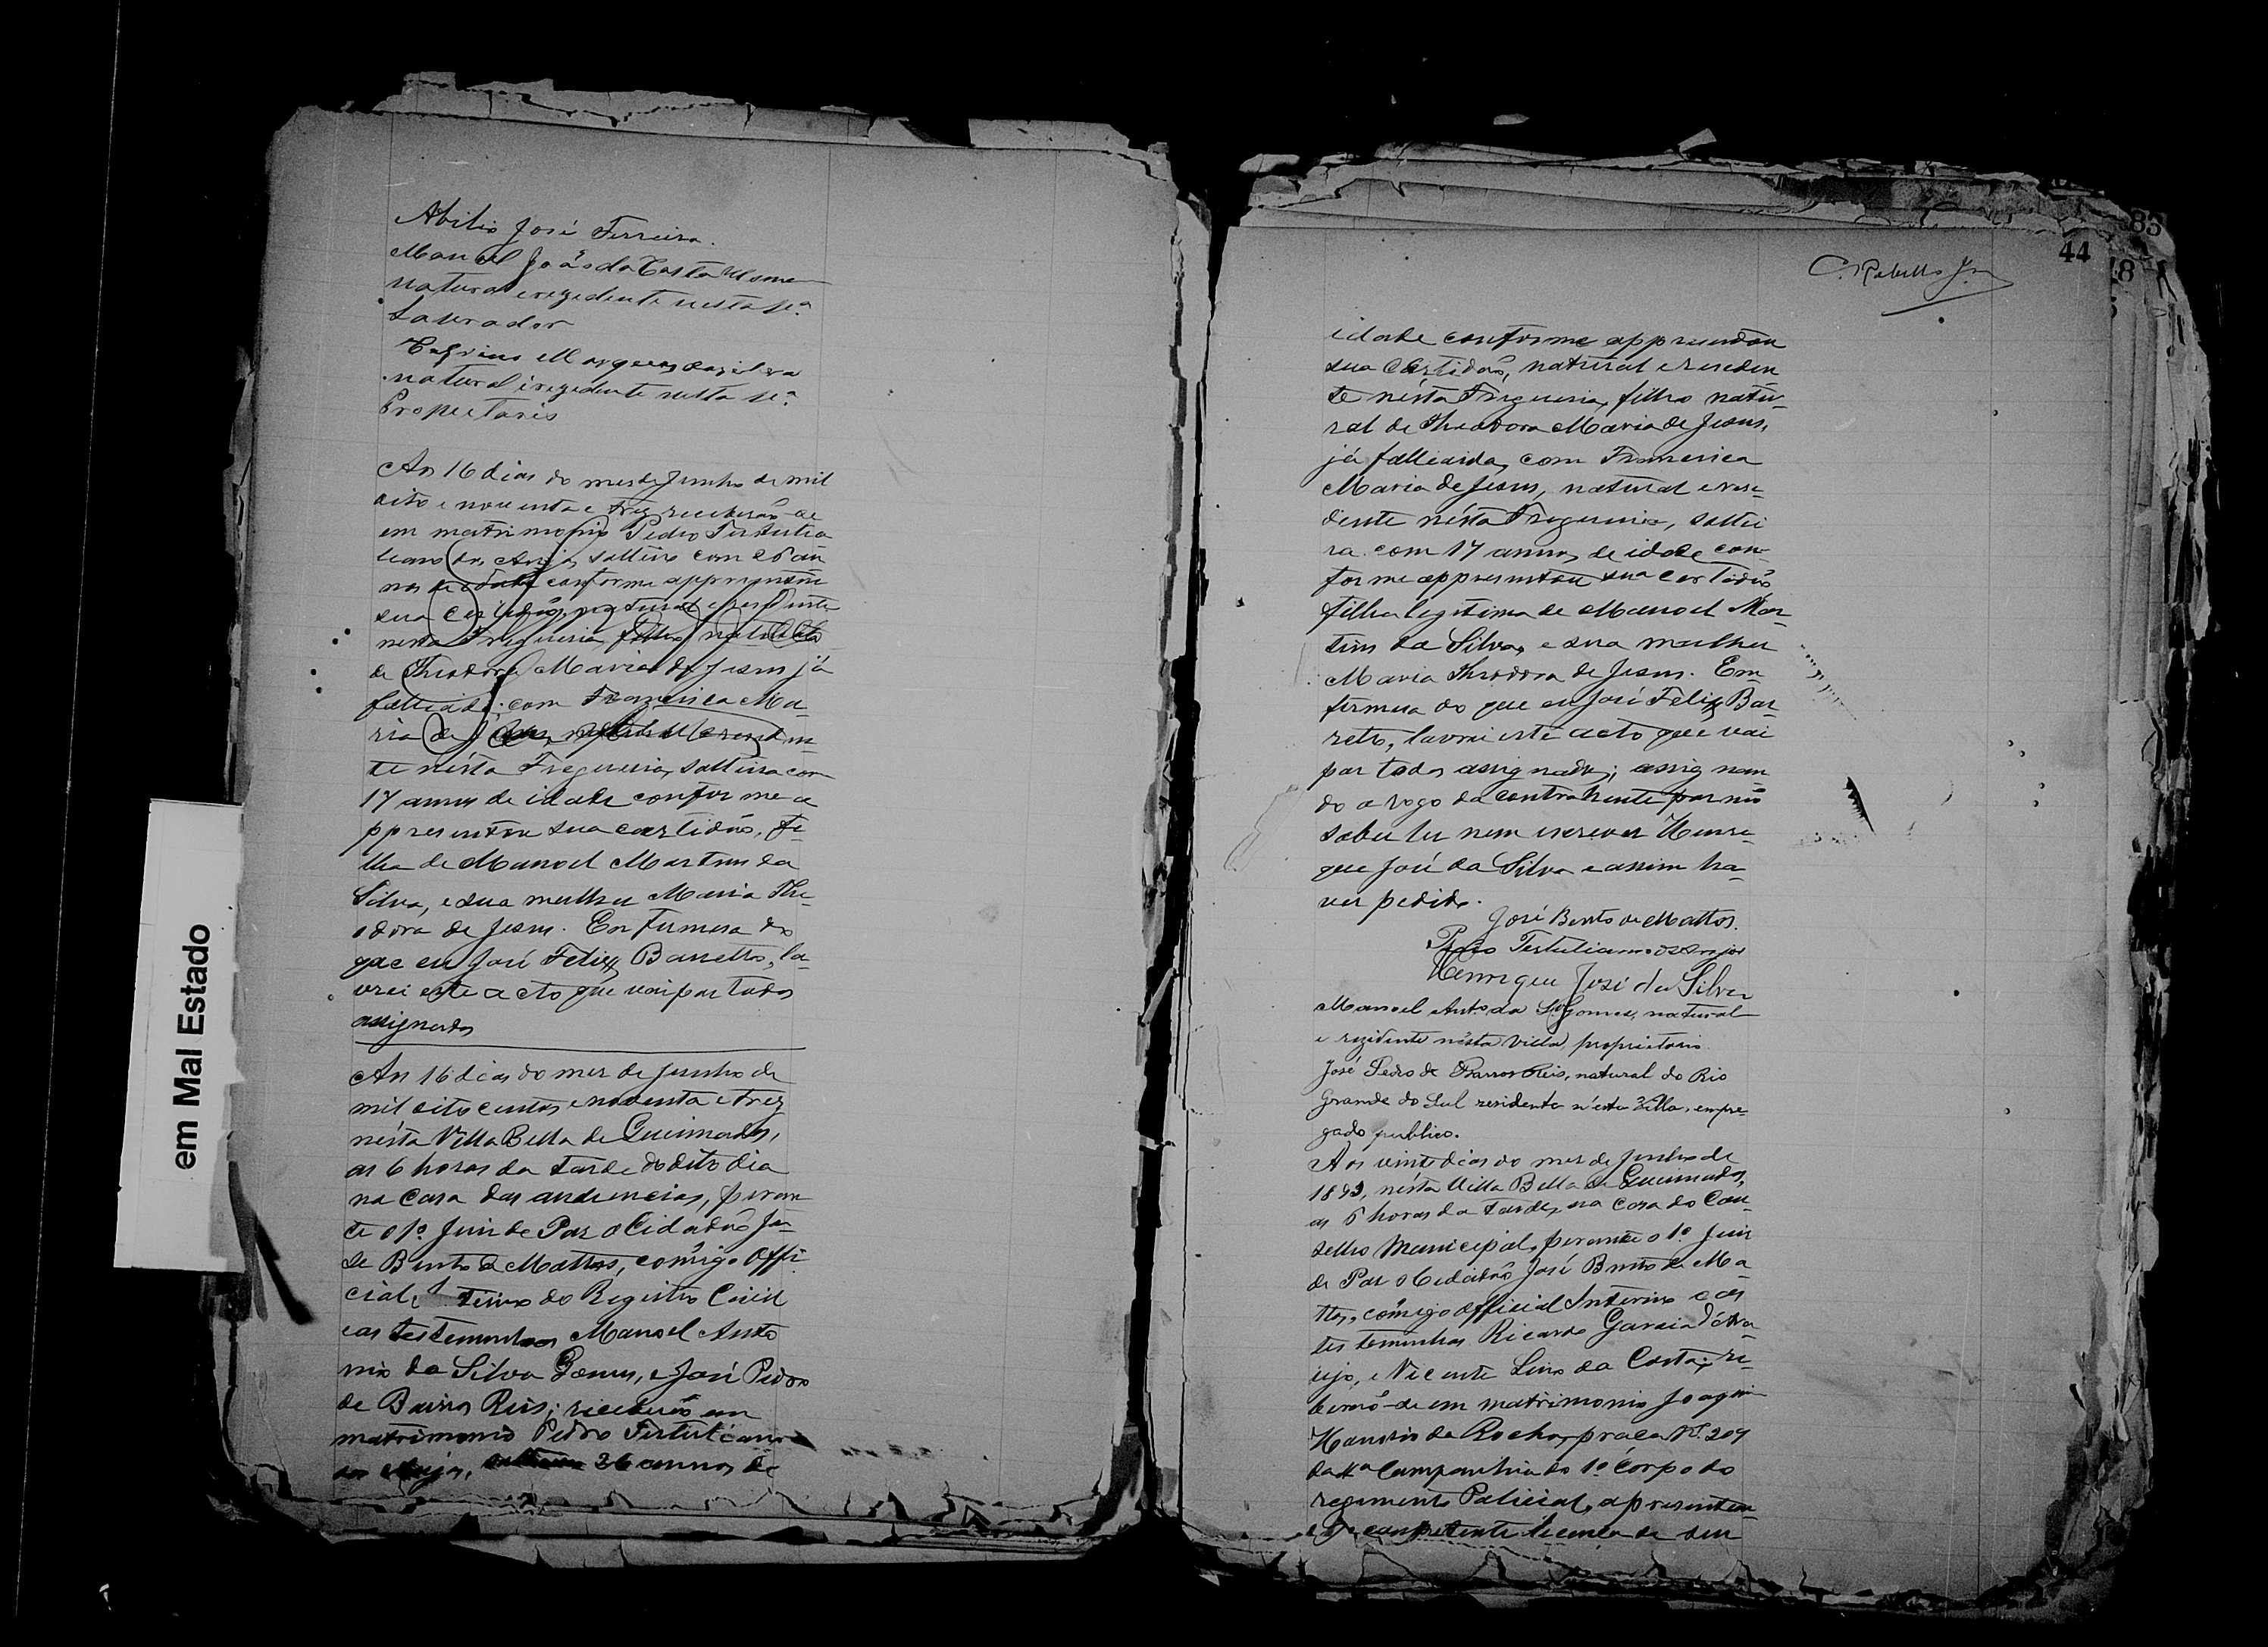 Abilio José Ferreira.
Manoel João da Costa
natural e rezedente nesta va
Lavrador
Marques da silva
natural i rezedente nesta va
Propietario
Aos 16 dias do mes de Junho de mil
oito e noventa e trez receberão-se
em matrimonio Pedro Tertulia
no dos Anjos, solteiro com 26 an
nos de idade conforme appresentou
sua certidão, natural e residente
nesta Freguesia, filho natural
de Theodora Maria de Jesus já
fallecida; com Francisca Ma-
ria de Jesus, natural e residen-
te nésta Freguesia, solteira com
17 annos de idade conforme a
ppresentou sua certidão, fi-
lha de Manoel Martins da
Silva, e sua mulher Maria The-
odora de Jesus. Em firmesa do
que eu José Felix Barretto, la-
vrei este acto que vai por todos
assignados
Aos 16 dias do mes de Junho de
mil oito centos e noventa e trez
nésta Villa Bella de Queimadas,
as 6 horas da tarde do dito dia
na casa das audiencias, peran-
te o 1º Juiz de Paz o Cidadão Jo-
se Bento de Mattos, comigo Offi-
cial do Registro Civil
e as testemunhas Manoel Anto
nio da Silva Gomes, e José Pedro
de Barros Reis; receberão em
matrimonio Pedro Tertuliano
dos Anjos, 26 annos de
83
44
8
C. Rabello Jr
idade conforme appresentou
sua certidão, natural e residen
te nésta Freguesia, filho natu-
ral de Theodora Maria de Jesus,
já fallecida, com Francisca
Maria de Jesus, natural e resi-
dente nésta Freguesia, soltei
ra com 17 annos de idade con-
forme appresentou sua certidão
filha legitima de Manoel Mar-
tins da Silva, e sua mulher
Maria Theodora de Jesus. Em
firmesa do que eu José Felix Bar-
retto, lavrei este acto que vai
por todos assignados; assignan-
do a rogo da contrahente por não
saber ler nem escrever Henri-
que José da Silva e assim ha-
ver pedido.
José Bento de Mattos.
Pedro Tertuliano dos Anjos
Henrique José da Silva
Manoel Antº da Sª Gomes, natural
e rezidente nésta villa, proprietario
José Pedro de Barros Reis, natural do Rio
Grande do Sul residente n'esta Villa, empre-
gado publico.
Aos vinte dias do mes de Junho de
1893, nésta Villa Bella de Queimadas,
as 6 horas da tarde, na Casa do Con-
selho Municipal, perante o 1º Juiz
de Paz o Cidadão José Bento de Ma-
ttos, comigo Official Interino e as
testeminhas Ricardo Garcia d'Ara-
ujo, e Vicente Lino da Costa; re-
ceberão-se em matrimonio Joaquim
da Rocha, praça Nº 209
da 4ª Companhia do 1º Corpo do
regimento Policial, apresentou
a competente licença de seu
em Mal Estado